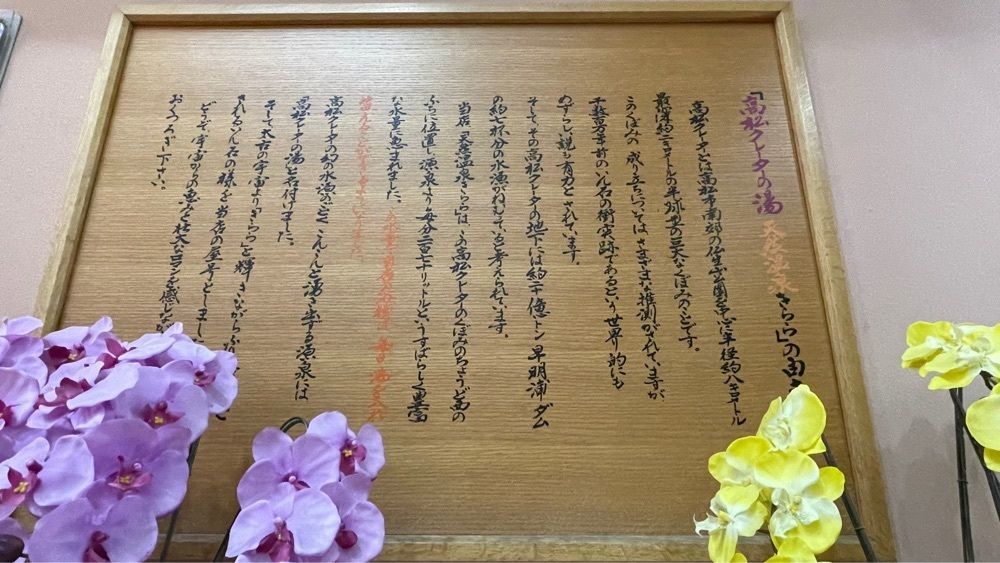 「高松クレーターの湯 天然温泉 きらら」の由
高松クレーターとは高松市南部の仏生山公園を中心に半径約八キロメートル
最深約二キロメートルの半球型の巨大なくぼみのことです。
このくぼみの成り立ちについてはさまざまな推測がされていますが
千数百万年前のいん石の衝突跡であるという世界的にも
めずらしい説も有力とされています。
そしてその高松クレーターの地下には約二十億トン 早明浦ダム
の約七杯分の水源がねむっていると考えられています。
当店「天然温泉きらら」は、この高松クレーターのくぼみのちょうど西の
ふちに位置し、源泉より毎分二百七十リットルというすばらしく豊富
な水量に恵まれました。
高松クレーターの幻の水源のごとくこんこんと湧き出する源泉には
「高松クレーターの湯」と名付けました。
そして太古の宇宙より「きらら」と輝きながら
いん石の様を当店の屋号としまし
どうぞ、宇宙からの恵みと壮大なロマンを感じなが
おくつろぎ下さい。